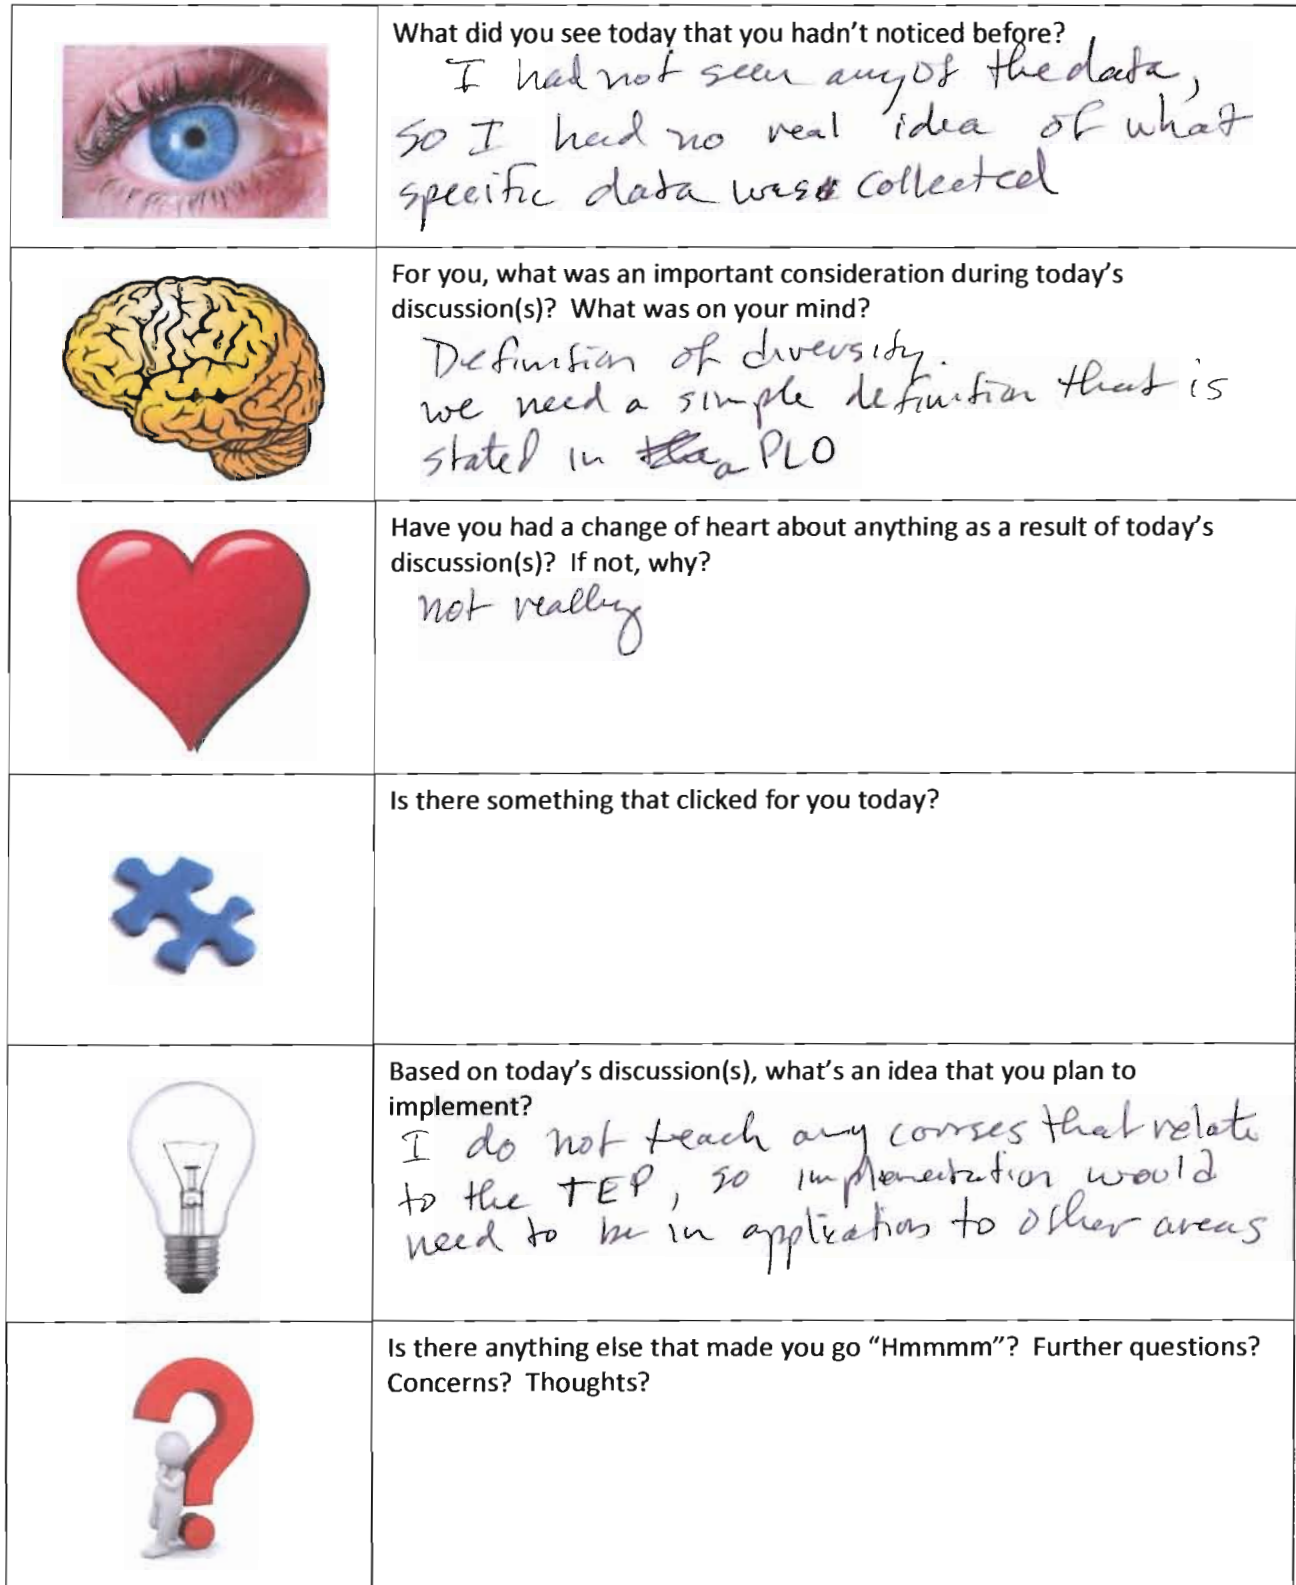 What did you see today that you hadn't noticed before?
I had not seen any of the data,
so I had no real idea of what
specific data was collected
For you, what was an important consideration during today's
discussion(s)? What was on your mind?
Definition of diversity.
we need a simple definition that is
stated in a PLO
Have you had a change of heart about anything as a result of today's
discussion(s)? If not, why?
not really
Is there something that clicked for you today?
Based on today's discussion(s), what's an idea that you plan to
implement?
I do not teach any courses that relate
to the TEP, so implementation would
need to be in application to other areas
Is there anything else that made you go "Hmmmm"? Further questions?
Concerns? Thoughts?